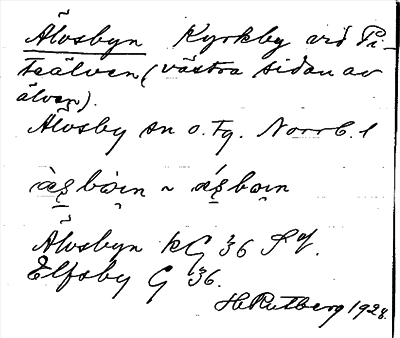 Älvsbyn Kyrkby vid Pi-
teälven (västra sidan av
älven).
Älvsby sn o. tg. Norrb. l
Älvsbyn kG 36 Sq.
Elfsby G 36.
H Rutberg 1928.